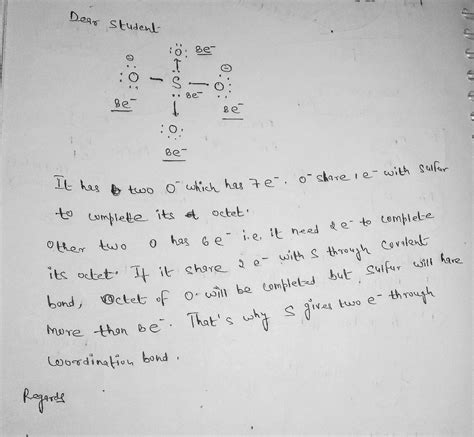 Dear Student
:Ö: 8e⁻
⊖ ↑ ⊖
:Ö — S — Ö:
8e⁻ 8e⁻ 8e⁻
↓
:Ö:
8e⁻
It has two O⁻ which has 7e⁻. O⁻ share 1e⁻ with sulfur
to complete its octet.
Other two O has 6e⁻ i.e. it need 2e⁻ to complete
its octet. If it share 2e⁻ with S through covalent
bond, Octet of O will be completed but sulfur will have
more then 8e⁻. That's why S gives two e⁻ through
coordination bond.
Regards